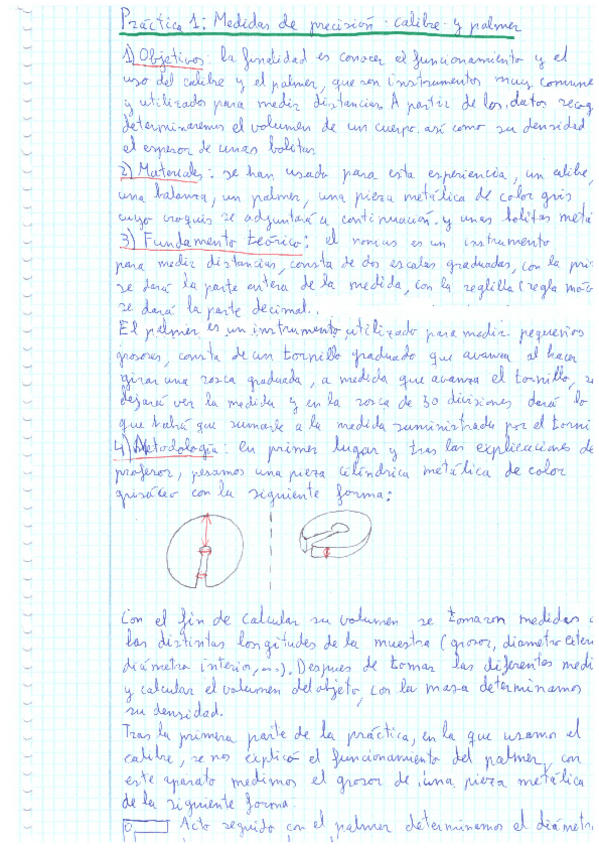 Práctica 1: Medidas de precisión - calibre y palmer
1) Objetivos: la finalidad es conocer el funcionamiento y el
uso del calibre y el palmer, que son instrumentos muy comune
y utilizados para medir distancias. A partir de los datos recog
determinaremos el volumen de un cuerpo así como su densidad
el espesor de unas bolitas
2) Materiales: se han usado para esta experiencia, un calibre,
una balanza, un palmer, una pieza metálica de color gris
cuyo croquis se adjuntará a continuación y unas bolitas metá
3) Fundamento teórico: el nonius es un instrumento
para medir distancias, consta de dos escalas graduadas, con la pri
se dará la parte entera de la medida, con la reglilla (regla
se dará la parte decimal..
El palmer es un instrumento utilizado para medir pequeños
grosores, consta de un tornillo graduado que avanza al hacer
girar una rosca graduada, a medida que avanza el tornillo,
dejará ver la medida y en la rosca de 50 divisiones dará lo
que habrá que sumarle a la medida suministrada por el torni
4) Metodología: En primer lugar y tras las explicaciones de
profesor, pesamos una pieza cilíndrica metálica de color
grisáceo con la siguiente forma:
Con el fin de calcular su volumen se tomaron medidas
las distintas longitudes de la muestra (grosor, diametro exter
diámetro interior, ...). Despues de tomar las diferentes medi
y calcular el volumen del objeto, con la masa determinamos
su densidad.
Tras la primera parte de la práctica, en la que usamos el
calibre, se nos explicó el funcionamiento del palmer, con
este aparato medimos el grosor de una pieza metálica
de la siguiente forma:
Acto seguido con el palmer determinamos el diámetr